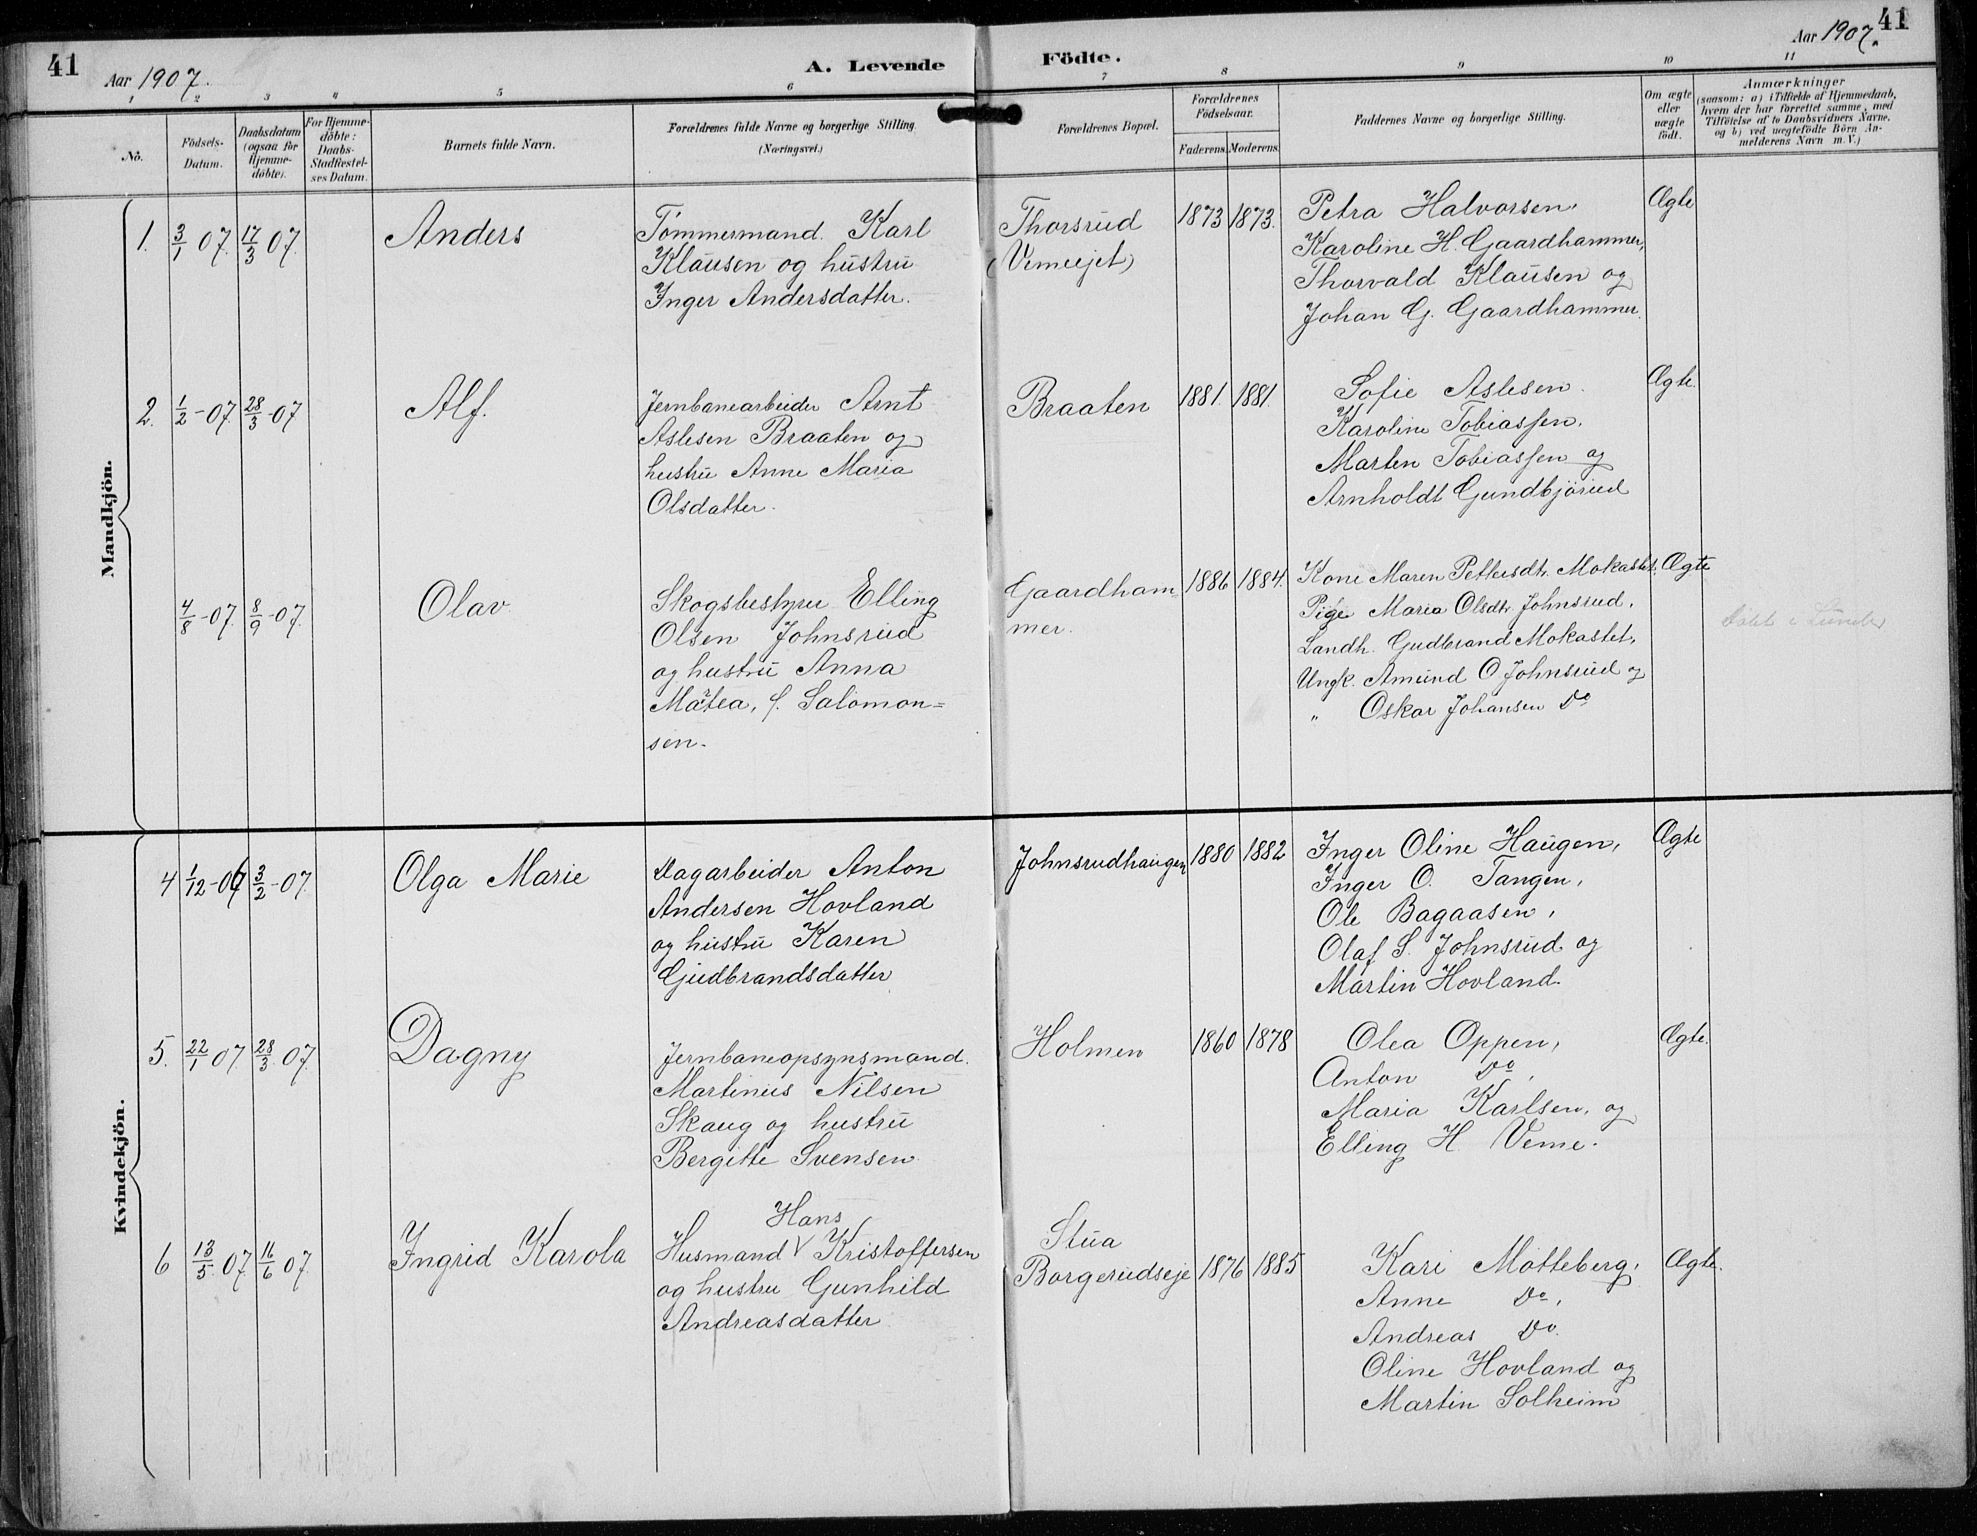 41
Aar 1907.
A. Levende
Födte.
Aar 1907.
41
1 2 3 4 5 6 7 8 9 10 11
No.
Födsels-
Datum.
Daabsdatum
(ogsaa for
Hjemme-
döbte).
For Hjemme-
döbte:
Daabs-
Stadfæstel-
ses Datum.
Barnets fulde Navn.
Forældrenes fulde Navne og borgerlige Stilling.
(Næringsvei.)
Forældrenes Bopæl.
Forældrenes
Födselsaar.
Faderens. Moderens.
Faddernes Navne og borgerlige Stilling.
Om ægte
eller
uægte
født.
Anmærkninger
(saasom: a) i Tilfælde af Hjemmedaab,
hvem der har forrettet samme, med
Tilföielse af to Daabsvidners Navne.
og b) ved uægtefödte Börn An-
melderens Navn m. V.)
Mandkjön.
1. 3/1 07. 17/3 07.
Anders
Tømmermand Karl
Klausen og hustru
Inger Andersdatter.
Thorsrud
(Vemeejet)
1873 1873.
Petra Halvorsen,
Karoline H. Gaardhammer,
Thorvald Klausen og
Johan G. Gaardhammer.
Ægte
2. 1/2-07. 28/3-07
Alf.
Jernbanearbeider Arnt
Aslesen Braaten og
hustru Anne Maria
Olsdatter.
Braaten
1881. 1881.
Sofie Aslesen.
Karoline Tobiassen.
Marten Tobiassen og
Arnholdt Gundbjørud
Ægte.
4/8-07. 8/9-07.
Olav
Skogsbestyrer Elling
Olsen Johnsrud
og hustru Anna
Matea, f. Salomon=
sen.
Gaardham
mer.
1886 1884.
Kone Maren Pettersdtr. Mokastet.
Pige Maria Olsdtr Johnsrud,
Landh. Gudbrand Mokastet,
Ungk. Amund O. Johnsrud og
" Oskar Johansen Do
Ægte
Kvindekjön.
4 1/12-06 3/2-07.
Olga Marie
Dagarbeider Anton
Andersen Hovland
og hustru Karen
Gudbrandsdatter
Johnsrudhaugen
1880 1882
Inger Oline Haugen,
Inger O. Tangen,
Ole Bagaasen,
Olaf S. Johnsrud og
Martin Hovland.
Ægte
5. 22/1 07. 28/3 07.
Dagny
Jernbaneopsynsmand.
Martinius Nilsen
Skaug og hustru
Bergitte Svensen
Holmen
1860 1878
Olea Oppen,
Anton Do,
Maria Karlsen, og
Elling H. Veme.
Ægte.
6 13/5 07. 16/6 07.
Ingrid Karola
Hans
Husmand V Kristoffersen
og hustru Gunhild
Andreasdatter
Stua
Borgerudseje
1876 1885
Kari Motteberg,
Anne Do,
Andreas Do.
Oline Hovland og
Martin Solheim
Ægte.